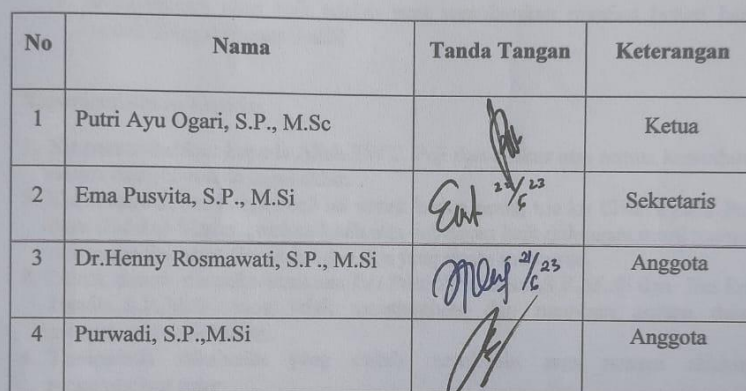 No Nama Tanda Tangan Keterangan
1 Putri Ayu Ogari, S.P., M.Sc Ketua
2 Ema Pusvita, S.P., M.Si Sekretaris
3 Dr.Henny Rosmawati, S.P., M.Si 21/6 23 Anggota
4 Purwadi, S.P.,M.Si Anggota